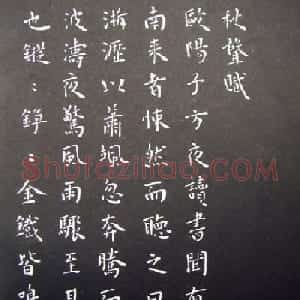 秋聲賦
歐陽子方夜讀書聞有
南来者悚然而聽之曰
淅瀝以蕭颯忽奔騰而
波濤夜驚風雨驟至其
也鏦〻錚〻金鐵皆鳴
Shufaziliao.COM